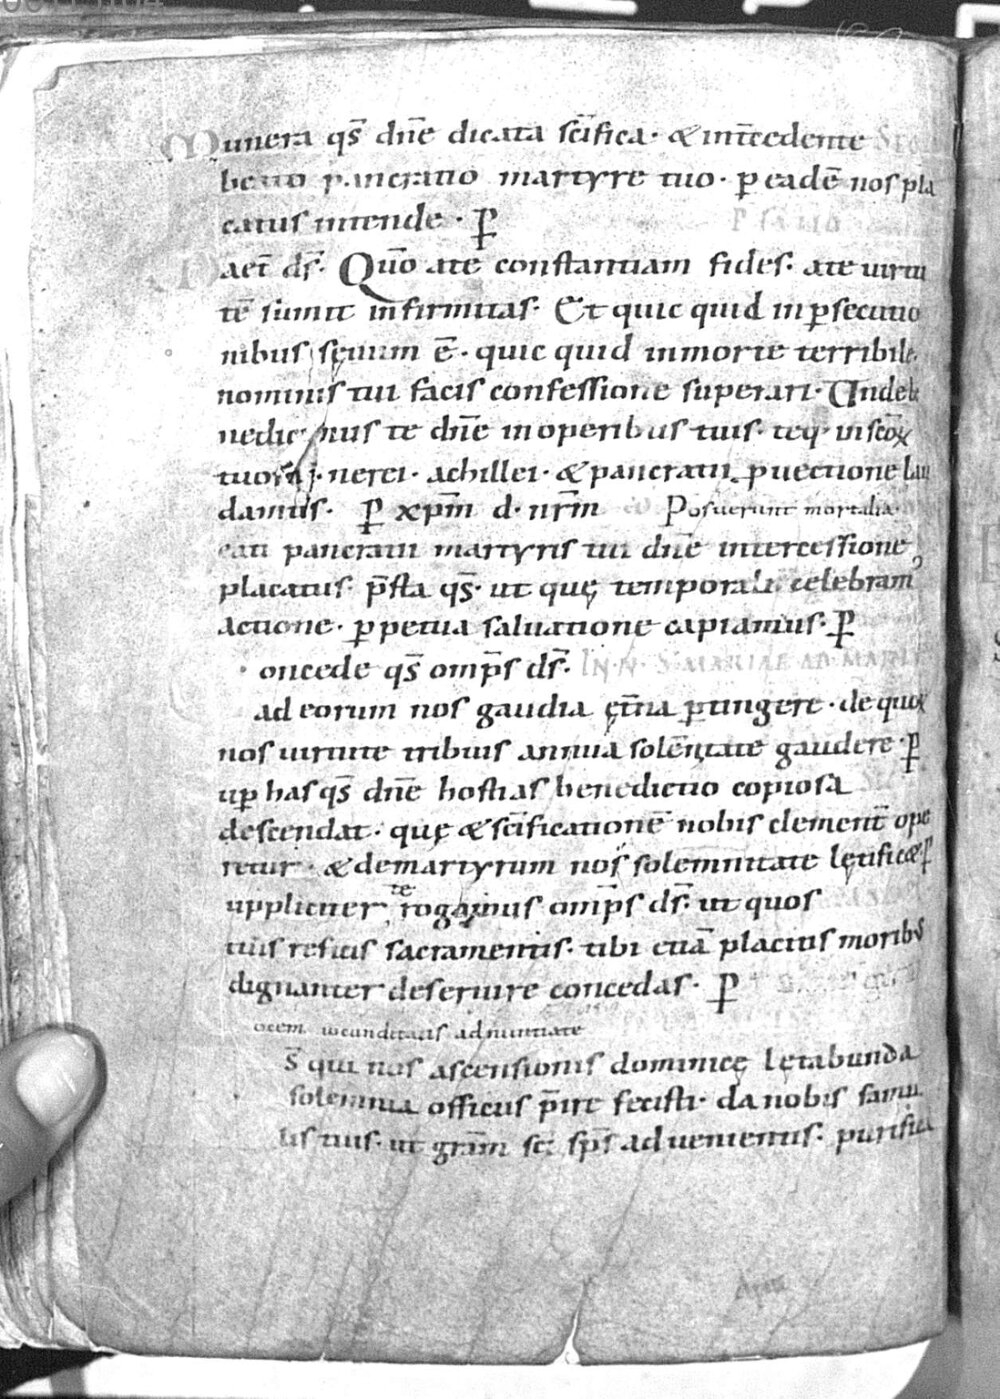 Munera qs̄ dn̄e dicata sc̄ifica · & int̄cedente
beato pancratio martyre tuo · ꝑ eadē nos pla
catus intende · ꝑ
aet̄ ds̄. Quō ate constantiam fides · ate uirtu
tē sumit infirmitas · Et quic quid in ꝑsecutio
nibus sęuum ē · quic quid in morte terribile
nominis tui facis confessione superari · Unde be
nedicimus te dn̄e in operibus tuis · teq· in scōꝝ
tuorū · nerei · achillei · & pancratii ꝓuectione lau
damus · ꝑ xp̄m d · nr̄m Posuerunt mortalia ·
eati pancratii martyris tui dn̄e intercessione
placatus · p̄sta qs̄ · ut quę temporali celebram᾿
actione · ꝑpetua saluatione capiamus · ꝑ
oncede qs̄ omp̄s ds̄. IN N · S MARIAE AD MART
ad eorum nos gaudia ęt̄na ꝑtingere · de quoꝝ
nos uirtute tribuis annua solēnitate gaudere · ꝑ
uꝑ has qs̄ dn̄e hostias benedictio copiosa
descendat · quę & sc̄ificationē nobis clement̄ ope
retur · & de martyrum nos solemnitate lętific& ꝑ
uppliciter te rogamus omp̄s ds̄ · ut quos
tuis reficis sacramentis · tibi etiā placitis moribs
dignanter deseruire concedas · ꝑ
ocem iocunditatis adnuntiate
s̄ qui nos ascensionis dominicę lętabunda
solemnia officiis p̄ire fecisti · da nobis famu
lis tuis · ut grām sc̄i sp̄s aduenientis · purifica